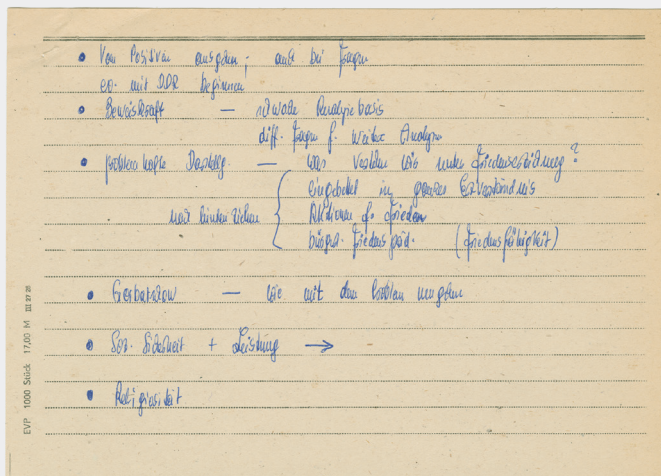 • Vom Positiven ausgehen; auch bei Fragen
ev. mit DDR beginnen
• Beweiskraft — schwache Analysebasis
diff. Fragen f. weitere Analysen
• problemhafte Darstellg. — was verstehen wir unter Friedenserziehung?
eingebettet in ganzes
mit hinein ziehen { Aktionen f. Frieden
bürgerl. Friedenspäd. (Friedensfähigkeit)
• Gorbatschow — wie mit dem Problem umgehen
• Soz. Sicherheit + Leistung →
• Religiosität
EVP 1000 Stück 17,00 M